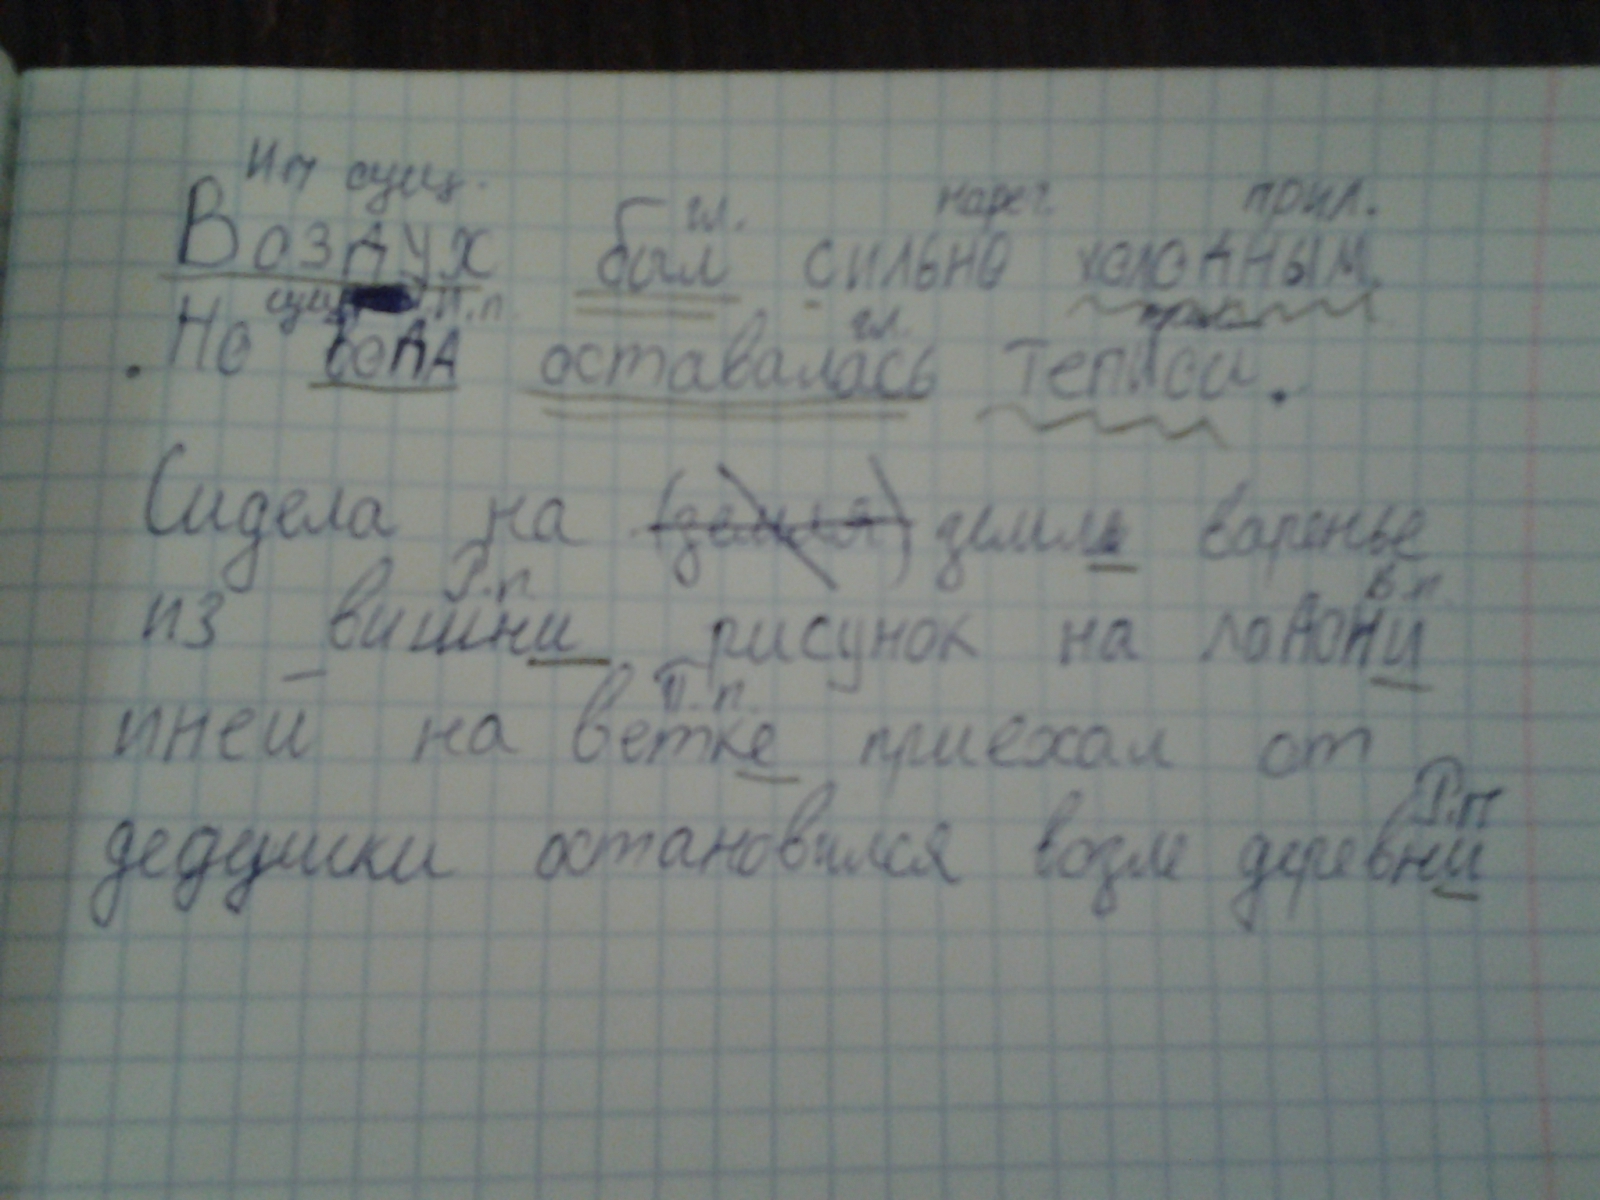 Им сущ.
гл. нареч. прил.
Воздух был сильно холодным.
сущ. И.п. гл.
Но вода оставалась теплой.
Сидела на (земля) земле варенье
Р.п. В.п.
из вишни рисунок на ладони
П.п.
иней на ветке приехал от
Р.п
дедушки остановился возле деревни